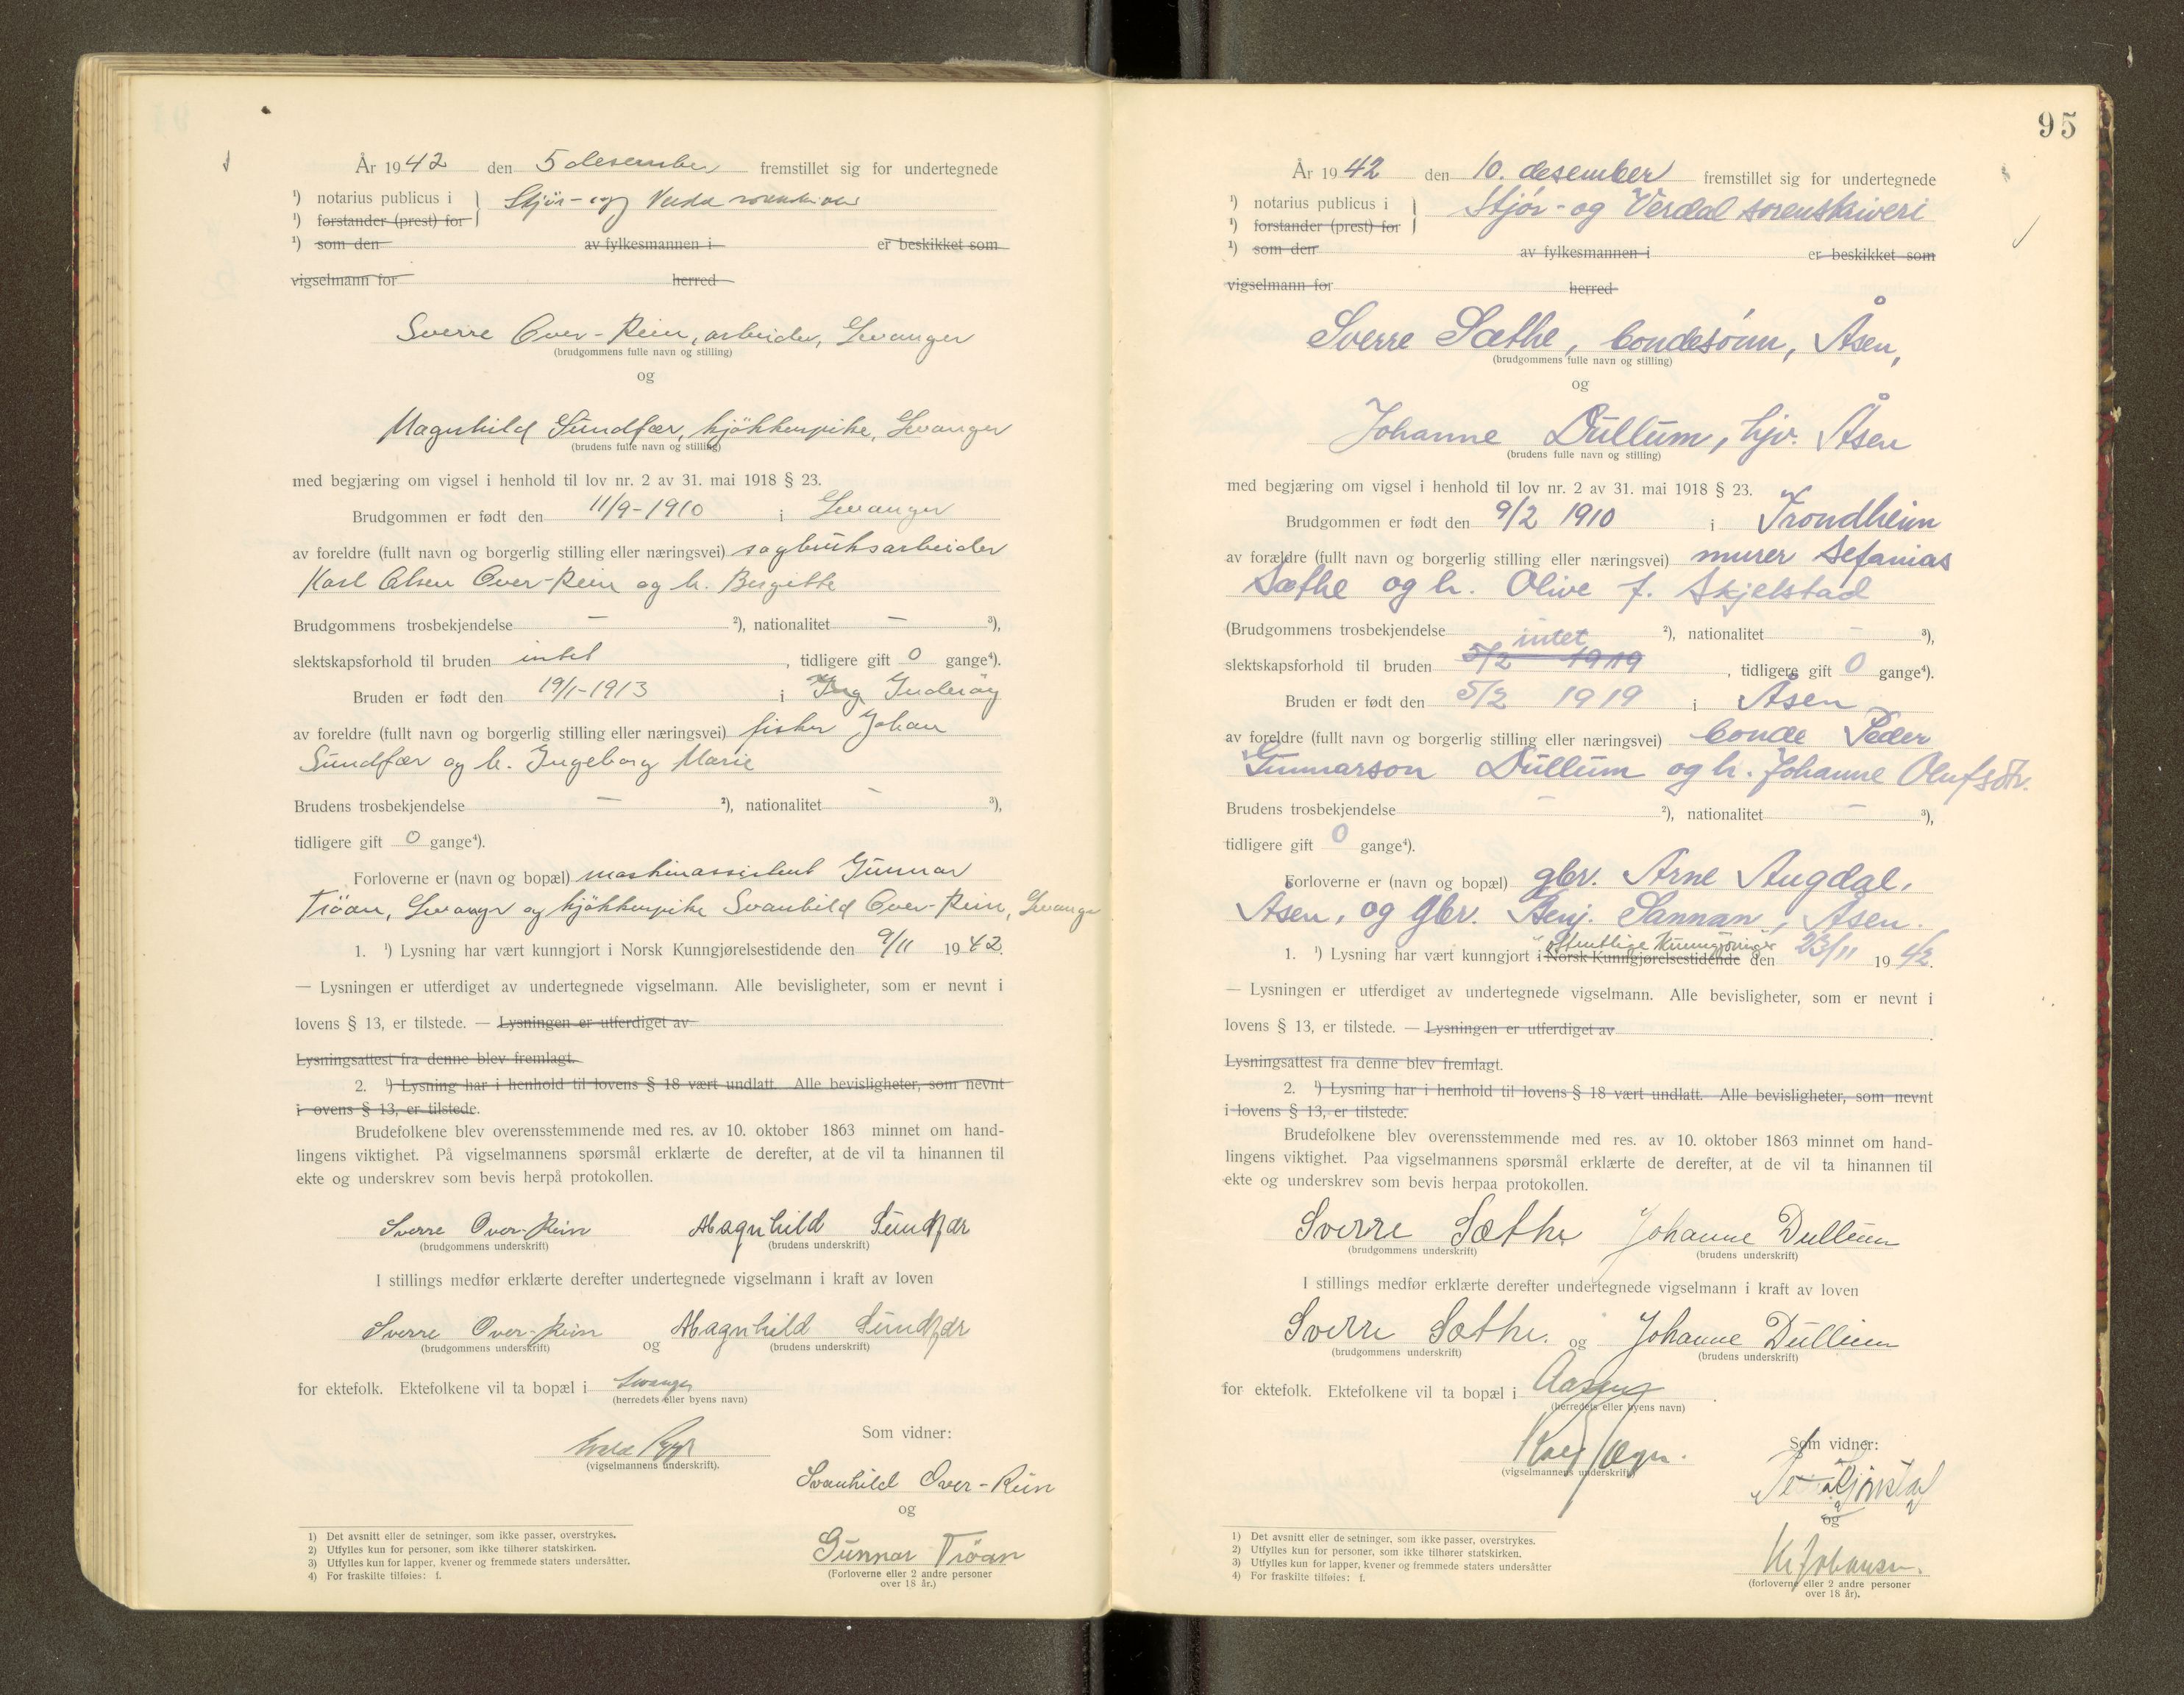 År 1942 den 5 desember fremstillet sig for undertegnede
¹) notarius publicus i } Stjør- og Verdal sorenskriveri
¹) forstander (prest) for
¹) som den av fylkesmannen i er beskikket som
vigselmann for herred
Sverre Over-Rein, arbeider, Levanger
(brudgommens fulle navn og stilling)
og
Magnhild Sundfær, kjøkkenpike, Levanger
(brudens fulle navn og stilling)
med begjæring om vigsel i henhold til lov nr. 2 av 31. mai 1918 § 23.
Brudgommen er født den 11/9-1910 i Levanger
av foreldre (fullt navn og borgerlig stilling eller næringsvei) sagbruksarbeider
Karl Olsen Over-Rein og h. Bergitte
Brudgommens trosbekjendelse — ²), nationalitet — ³),
slektskapsforhold til bruden intet, tidligere gift 0 gange⁴).
Bruden er født den 19/1-1913 i Inderøy
av foreldre (fullt navn og borgerlig stilling eller næringsvei) fisker Johan
Sundfær og h. Ingeborg Marie
Brudens trosbekjendelse — ²), nationalitet — ³),
tidligere gift 0 gange⁴).
Forloverne er (navn og bopæl) maskinassistent Gunnar
Trøan, Levanger og kjøkkenpike Svanhild Over-Rein, Levanger
1. ¹) Lysning har vært kunngjort i Norsk Kunngjørelsestidende den 9/11 1942.
— Lysningen er utferdiget av undertegnede vigselmann. Alle bevisligheter, som er nevnt i
lovens § 13, er tilstede. — Lysningen er utferdiget av
Lysningsattest fra denne blev fremlagt.
2. ¹) Lysning har i henhold til lovens § 18 vært undlatt. Alle bevisligheter, som nevnt
i ovens § 13, er tilstede.
Brudefolkene blev overensstemmende med res. av 10. oktober 1863 minnet om hand-
lingens viktighet. På vigselmannens spørsmål erklærte de derefter, at de vil ta hinannen til
ekte og underskrev som bevis herpå protokollen.
Sverre Over-Rein Magnhild Sundfær
(brudgommens underskrift) (brudens underskrift)
I stillings medfør erklærte derefter undertegnede vigselmann i kraft av loven
Sverre Over-Rein og Magnhild Sundfær
(brudgommens underskrift) (brudens underskrift)
for ektefolk. Ektefolkene vil ta bopæl i Levanger
(herredets eller byens navn)
Som vidner:
(vigselmannens underskrift).
Svanhild Over-Rein
og
Gunnar Trøan
(Forloverne eller 2 andre personer
over 18 år.)
1) Det avsnitt eller de setninger, som ikke passer, overstrykes.
2) Utfylles kun for personer, som ikke tilhører statskirken.
3) Utfylles kun for lapper, kvener og fremmede staters undersåtter.
4) For fraskilte tilføies: f.
95
År 1942 den 10. desember fremstillet sig for undertegnede
¹) notarius publicus i } Stjør- og Verdal sorenskriveri
¹) forstander (prest) for
¹) som den av fylkesmannen i er beskikket som
vigselmann for herred
Sverre Sæthe, bondesønn, Åsen,
(brudgommens fulle navn og stilling)
og
Johanne Dullum, hjv. Åsen
(brudens fulle navn og stilling)
med begjæring om vigsel i henhold til lov nr. 2 av 31. mai 1918 § 23.
Brudgommen er født den 9/2 1910 i Trondheim
av forældre (fullt navn og borgerlig stilling eller næringsvei) murer Sefanias
Sæthe og h. Olive f. Skjelstad
(Brudgommens trosbekjendelse ²), nationalitet — ³),
slektskapsforhold til bruden 5/2 1919 intet, tidligere gift 0 gange⁴).
Bruden er født den 5/2 1919 i Åsen
av foreldre (fullt navn og borgerlig stilling eller næringsvei) bonde Peder
Gunnarson Dullum og h. Johanne Olufsdtr.
Brudens trosbekjendelse — ²), nationalitet — ³),
tidligere gift 0 gange⁴).
Forloverne er (navn og bopæl) gbr. Arne Augdal,
Åsen, og gbr. Benj. Sannan, Åsen.
1. ¹) Lysning har vært kunngjort i Norsk Kunngjørelsestidende "offentlige Kunngjøringer" den 23/11 1942.
— Lysningen er utferdiget av undertegnede vigselmann. Alle bevisligheter, som er nevnt i
lovens § 13, er tilstede. — Lysningen er utferdiget av .
Lysningsattest fra denne blev fremlagt.
2. ¹) Lysning har i henhold til lovens § 18 vært undlatt. Alle bevisligheter, som nevnt
i lovens § 13, er tilstede.
Brudefolkene blev overensstemmende med res. av 10. oktober 1863 minnet om hand-
lingens viktighet. Paa vigselmannens spørsmål erklærte de derefter, at de vil ta hinannen til
ekte og underskrev som bevis herpaa protokollen.
Sverre Sæthe Johanne Dullum
(brudgommens underskrift) (brudens underskrift)
I stillings medfør erklærte derefter undertegnede vigselmann i kraft av loven
Sverre Sæthe. og Johanne Dullum
(brudgommens underskrift) (brudens underskrift)
for ektefolk. Ektefolkene vil ta bopæl i Aasen.
(herredets eller byens navn)
Som vidner:
(vigselmannens underskrift)
og
Johansen.
(forloverne eller 2 andre personer
over 18 år).
1) Det avsnitt eller de setninger, som ikke passer, overstrykes.
2) Utfylles kun for personer, som ikke tilhører statskirken.
3) Utfylles kun for lapper, kvener og fremmede staters undersåtter
4) For fraskilte tilføies: f.